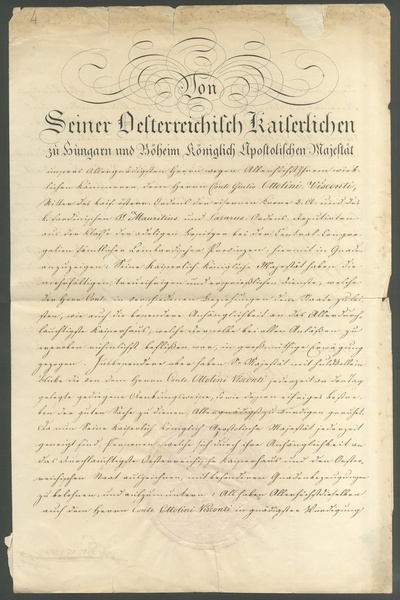 4
Von
Seiner Oesterreichisch Kaiserlichen
zu Hungarn und Böheim Königlich Apostolischen Majestät
unsers Allergnädigsten Herrn wegen Allerhöchst Ihrem wirk-
lichen Kämmerer, dem Herrn Conte Giulio Ottolini Visconti,
Ritter des kais. österr. Ordens der eisernen Krone 2. Cl. und des
k. Sardinischen St. Mauritius und Lazarus Ordens, Deputirten
aus der Klasse der adeligen Besitzer bei der Central-Congre-
gation sämtlicher Lombardischer Provinzen, hiemit in Gnaden
anzuzeigen: Seine Kaiserlich Königliche Majestät haben die
mehrfältigen, treueifrigen und ersprießliche Dienste, welche
der Herr Conte in verschiedenen Beziehungen dem Staate gelei-
stet, wie auch die besondere Anhänglichkeit an das Allerdurch-
lauchtigste Kaiserhaus, welche derselbe bei allen Anläßen zu
erproben rühmlichst beflissen war, in großmüthige Erwägung
gezogen. Insbesondere aber haben Se. Majestät mit
die von dem Herrn Conte Ottolini Visconti jederzeit an den Tag
gelegte gediegene Denkungsweise, sowie dessen eifriges Bestre-
ben der guten Sache zu dienen Allergnädigst zu würdigen geruhet.
Da nun Seine kaiserlich königlich Apostolische Majestät jederzeit
geneigt sind, Personen, welche sich durch ihre Anhänglichkeit an
das Durchlauchtigste Oesterreichische Kaiserhaus und den Oester-
reichischen Staat auszeichnen, mit besonderen Gnadenbezeigungen
zu belohnen, und aufzumuntern; Als haben Allerhöchstdieselben
auch dem Herrn Conte Ottolini Visconti in gnädigster Würdigung